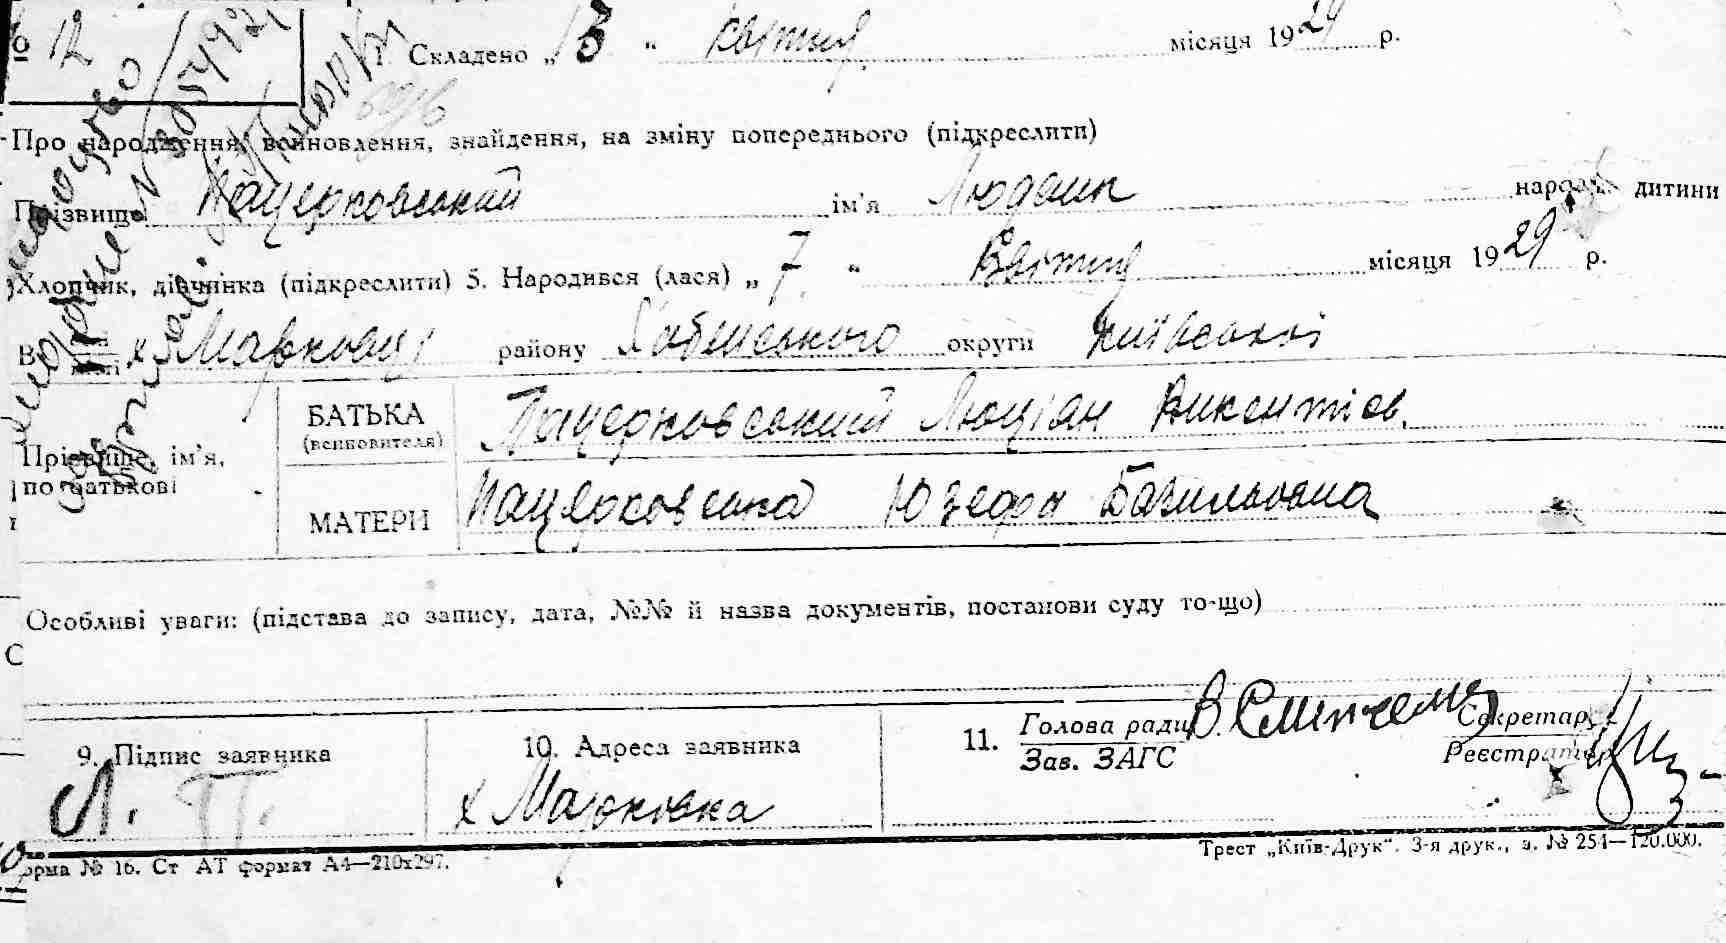 № 12
1. Складено „ 13 " квітня місяця 1929 р.
Про народження, всиновлення, знайдення, на зміну попереднього (підкреслити)
Прізвище Пацерковський ім'я Людвик народж. дитини
Хлопчик, дівчинка (підкреслити) 5. Народився (лася) „ 7 " Квітня місяця 1929 р.
В х Марковці району Хабенського округи Київської
Прізвище, ім'я, по батькові
БАТЬКА (всиновителя) Пацерковський Люціян Викентіев.
МАТЕРИ Пацерковська Юзефа Базильовна
Особливі уваги: (підстава до запису, дата, №№ й назва документів, постанови суду то-що)
9. Підпис заявника 10. Адреса заявника 11. Голова ради Секретар
Зав. ЗАГС Реєстратор
Л. П. х Марковка
орма № 16. Ст АТ формат А4—210х297. Трест „Київ-Друк". 3-я друк., з. № 254—120.000.